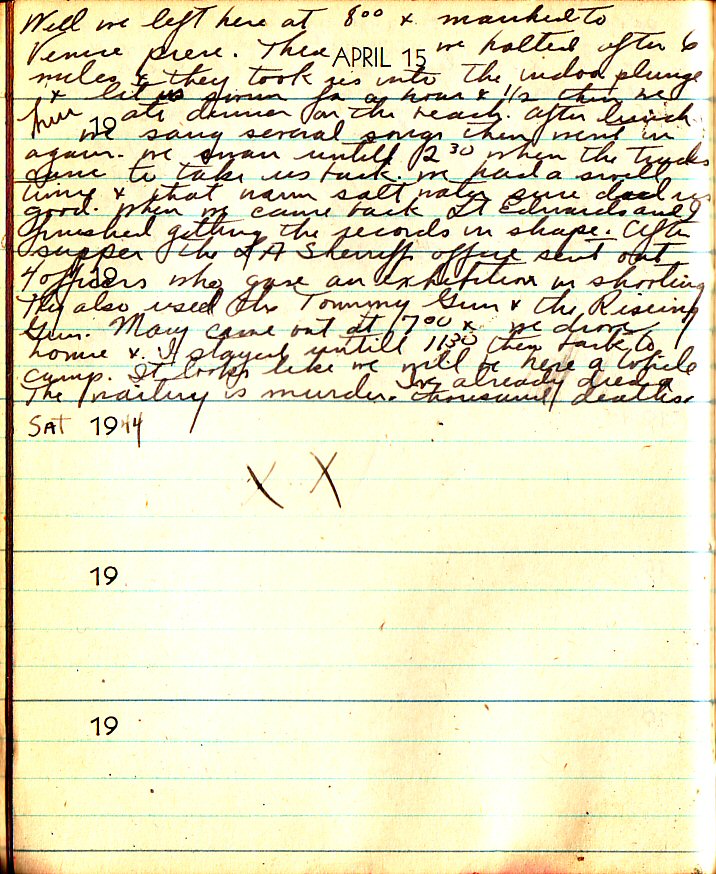 Well we left here at 8⁰⁰ & marched to
Venice piere. There we halted after 6
APRIL 15
miles & they took us into the indoor plunge
& let us swim for a hour & 1/2 then we
ate dinner on the beach. After lunch
19
we sang several songs then went in
again. We swam untill 2³⁰ when the trucks
came to take us back. We had a swell
time & that warm salt water sure did us
good. When we came back Lt Edwards and I
finished getting the records in shape. After
supper the LA Sherriff office sent out
4 officers who gave an exhibition in shooting
19
They also used the Tommy Gun & the Rising
Gun. Mary came out at 7⁰⁰ & we drove
home &. I stayed untill 11³⁰ then back to
camp. It looks like we will be here a while
The waiting is murder. I've already died a thousand deaths.
SAT 1944
X X
19
19